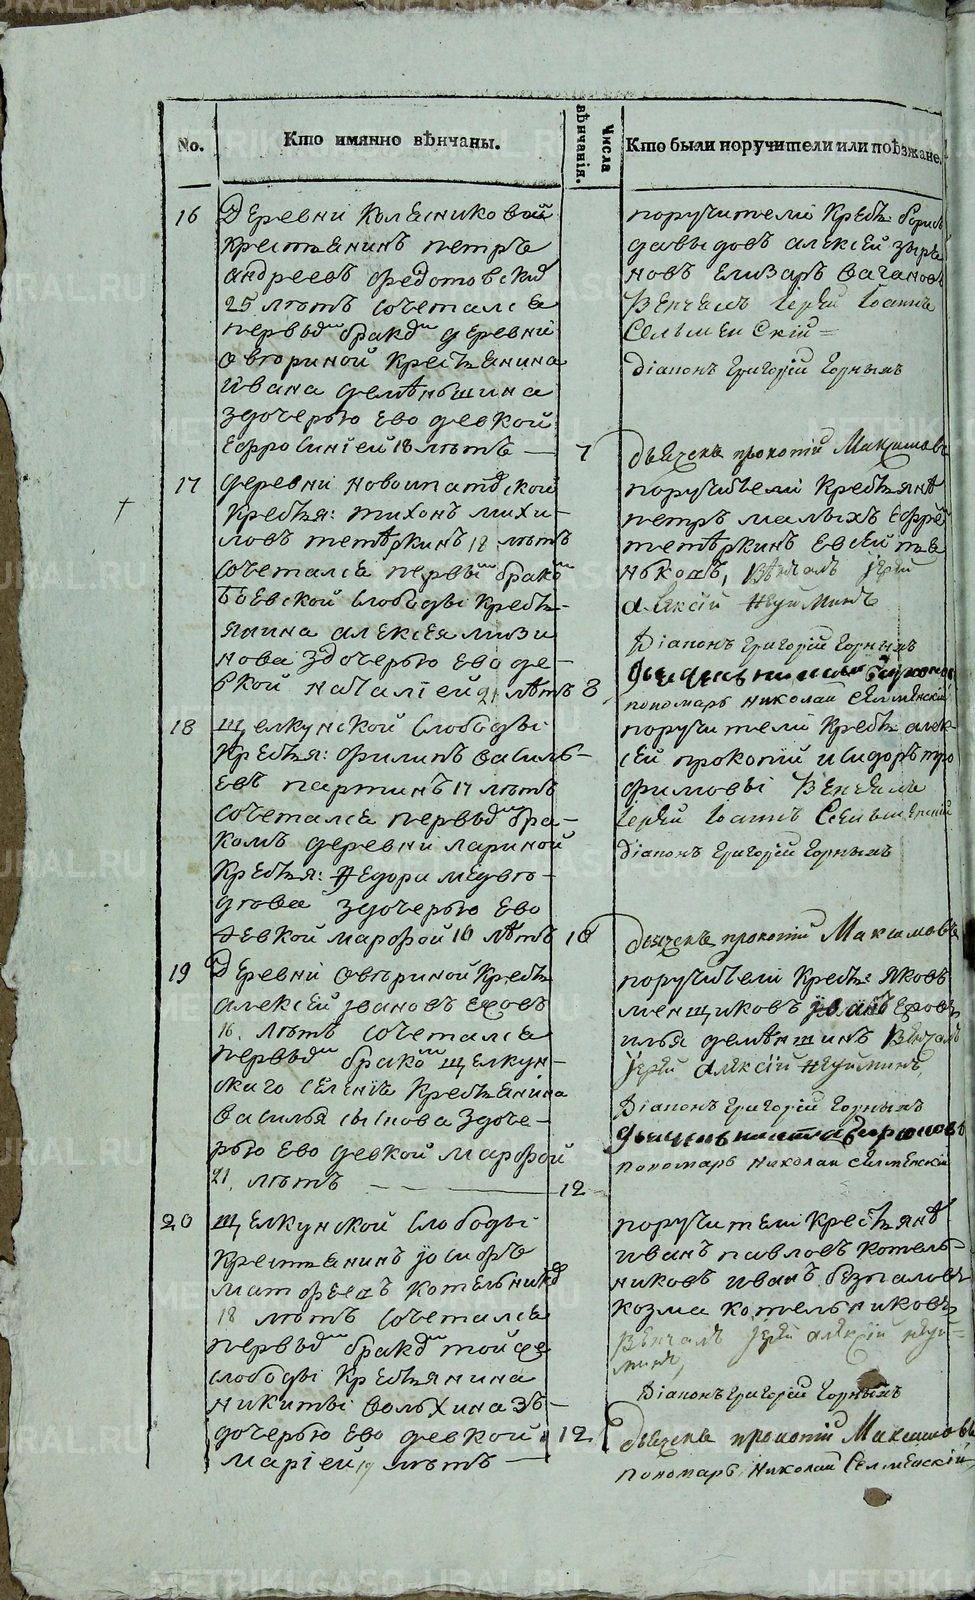 No.
Кто имянно вѣнчаны.
Числа вѣнчанія.
Кто были поручители или поѣзжане.
16
Деревни Колясниковой
крестьянинъ петръ
андреевъ федотовскид
25 лѣтъ сочетался
первыд бракд деревни
Овториной Крестьянина
Ивана деменьшина
здочерью ево девкой
Ефросиніей 18 лѣтъ — 7
поручители Кресть: борисъ
давыдовъ алексей зыря
новъ елизаръ вагановъ
Венчалъ Іерей Іоаннъ
Селменскій
Діаконъ Григорій Горныхъ
Дьячекъ прокопій Максимовъ
17
деревни новоипатовской
Крестья: тихонъ михи-
ловъ тетѣркинъ 18 лѣтъ
сочетался первы бракомъ
Боевской слободы Кресть-
янина алексея мизи
нова здочерью ево де-
вкой наталіей 21 лѣтъ 8
поручители Крестьяне
петръ малыхъ Ефре
тетѣркинъ Евсей
Вѣнчалъ Іерей
Алексій Неуйминъ
Діаконъ Григорій Горныхъ
пономарь Николай Селменскій
18
щелкунской слободы
Крестья: филипъ василь-
евъ партинъ 17 лѣтъ
сочетался первыд бра-
комъ деревни лариной
Крестья: Федора медвѣ-
дева здочерью ево
девкой марфой 18 лѣтъ 10
поручители Кресть: алек-
сей прокопій исидоръ тро
фимовы Венчалъ
Іерей Іоаннъ Селменскій
Діаконъ Григорій Горныхъ
Дьячекъ прокопій Максимовъ
19
Деревни Овториной Кресть
алексей Ивановъ Еховъ
16 лѣтъ сочетался
первыд бракомъ щелкун-
скаго селенія Крестьянина
Василья сысоева здоче-
рью ево девкой марфой
21 лѣтъ — 12
поручители Кресть: яковъ
менщиковъ Иванъ Еховъ
илья деменшинъ Вѣнчалъ
Іерей Алексій Неуйминъ,
Діаконъ Григорій Горныхъ
пономарь Николай Селменскій
20
щелкунской слободы
Крестьянинъ Іосифъ
матфеевъ котельникд
18 лѣтъ сочетался
первыд бракд той же
слободы Крестьянина
никиты вольхина зъ-
дочерью ево девкой 12
маріей 19 лѣтъ —
поручители Крестьяне
иванъ павловъ котель-
никовъ иванъ безпаловъ
козма котельниковъ
Вѣнчалъ Іерей Алексій Неуй-
минъ,
Діаконъ Григорій Горныхъ
Дьячекъ прокопій Максимовъ
пономарь Николай Селменскій
METRIKI.GASO-URAL.RU